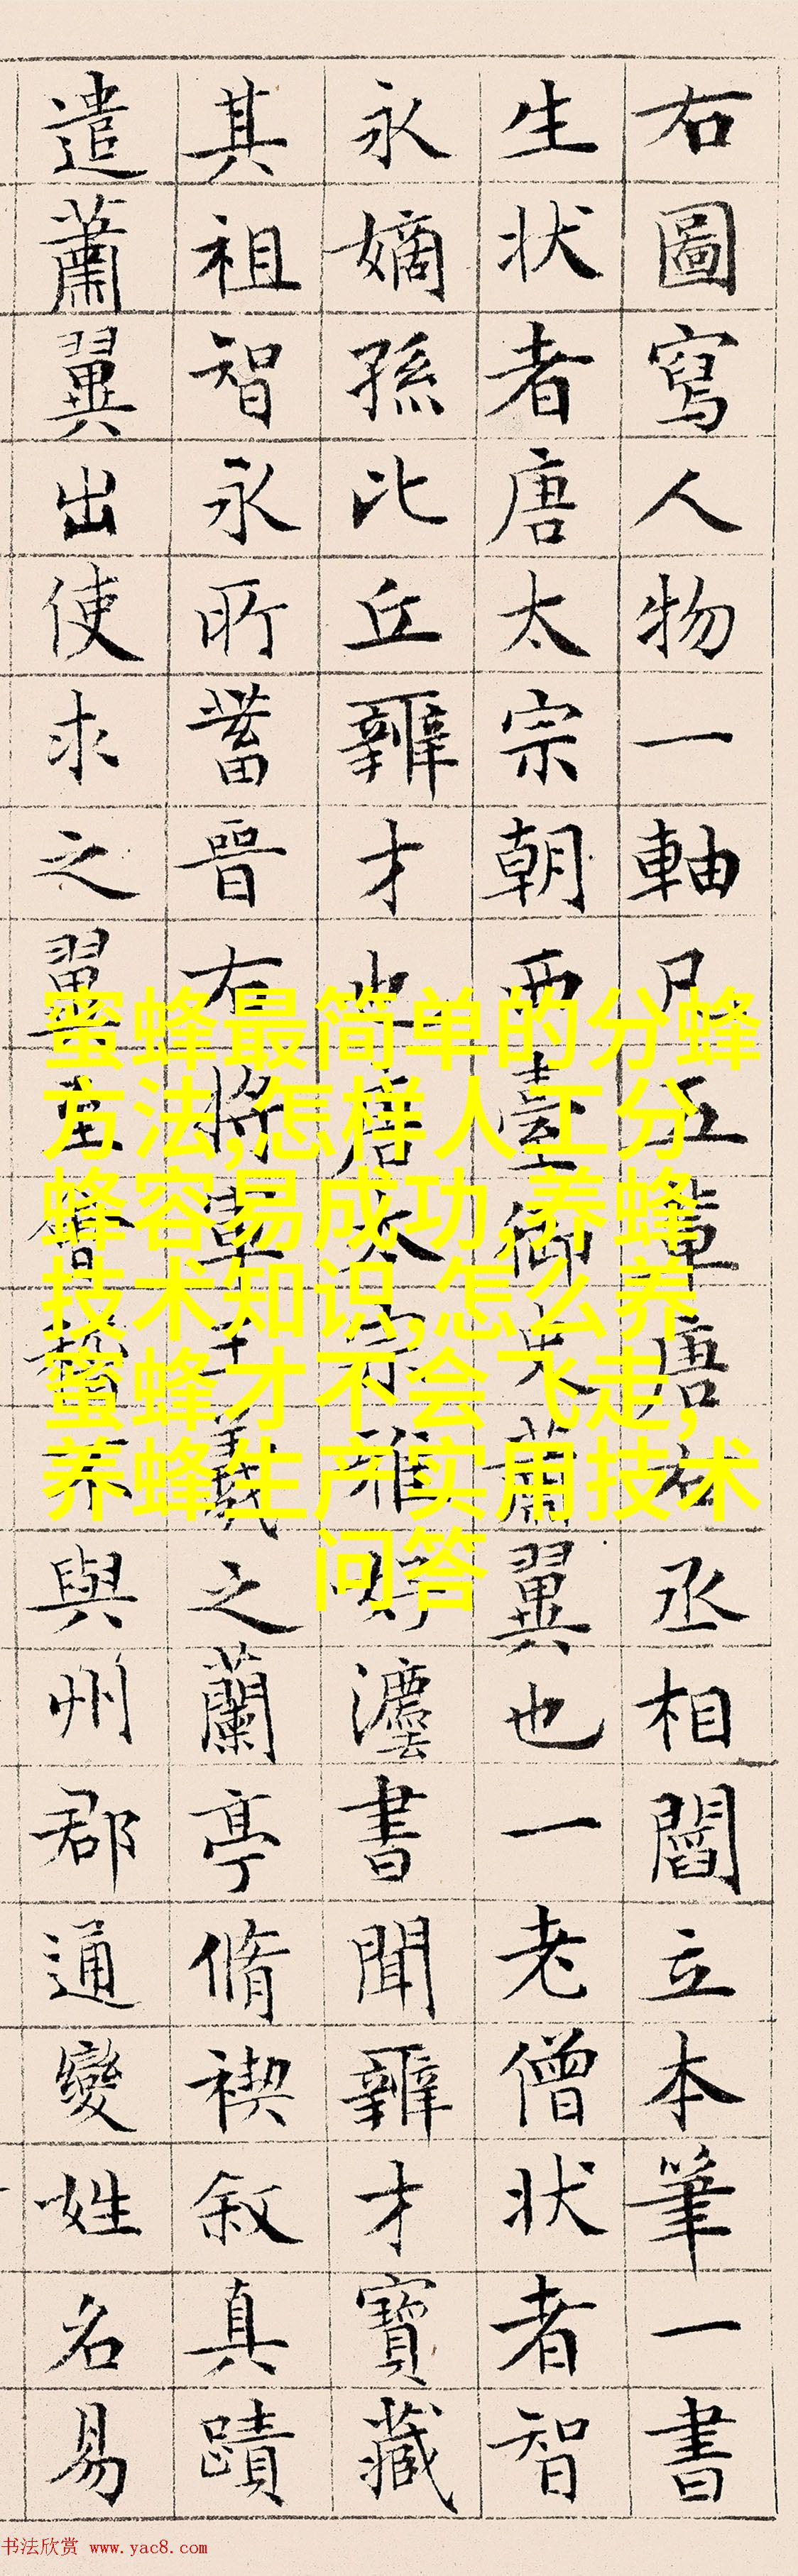 右圖寫人物一軸凡五輩唐右丞相閻立本筆一書
生状者唐太宗朝西臺御史蕭翼也一老僧状者智
永嫡孫比丘辯才也唐太宗雅好灋書聞辯才寶藏
其祖智永所蓄晉右将軍王羲之蘭亭脩禊叙真蹟
遣蕭翼出使求之翼至會稽不與州郡通變姓名易
蜜蜂最简单的分蜂
方法,怎样人工分
蜂容易成功,养蜂
技术知识,怎么养
蜜蜂才不会飞走,
养蜂生产实用技术
问答
书法欣赏 www.yac8.com